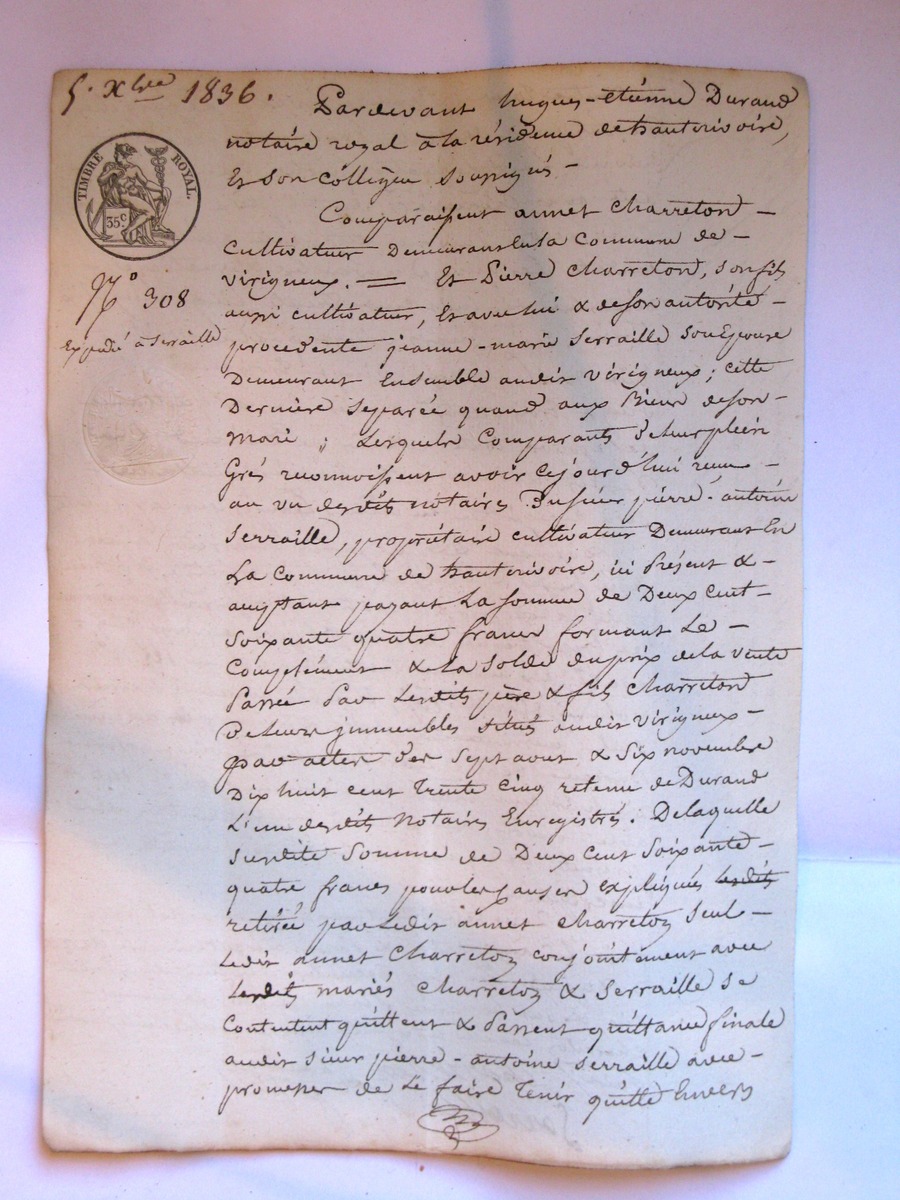 5. Xbre 1836.
TIMBRE ROYAL.
35c
No 308
Expédié à Serraille
Pardevant hugues-etiénne Durand
notaire royal à la résidence de hauterivoire,
Et Son Collègue Soussignés -
Comparaissent annet Charreton -
Cultivateur Demeurant En la Commune de -
virigneux. = Et Pierre Charreton, son fils
aussi cultivateur, Et avec lui & de son autorité -
procedente jeanne-marie Serraille son Epouse
Demeurant Ensemble audit virigneux; cette
Dernière Separée quand aux Biens de son -
Mari; Lesquels Comparants De leur plein
Grés reconnoissent avoir Cejourd'hui reçu -
au vu desdits notaires Du sieur pierre-antoine
Serraille, propriétaire cultivateur Demeurant En
La Commune de hauterivoire, ici Présent & -
acceptant payant La somme de Deux Cent -
Soixante quatre francs formant Le -
Complément & La Solde du prix de la vente
Passée Par Lesdits père & fils Charreton
De Leurs immeubles situés audit virigneux -
par actes Des Sept aout & Six novembre
Dix huit cent Trente Cinq retenu de Durand
L'un desdits Notaires Enregistrés. De laquelle
Susdite Somme de Deux Cent Soixante -
quatre francs pour les causes expliqués lesdits
retirée par Ledit annet Charreton Seul -
Ledit annet Charreton conjointement avec
Lesdits mariés Charreton & Serraille se
Contentent quittent & Passent quittance finale
audit sieur pierre-antoine Serraille avec -
promesses de Le faire Tenir quitte Envers